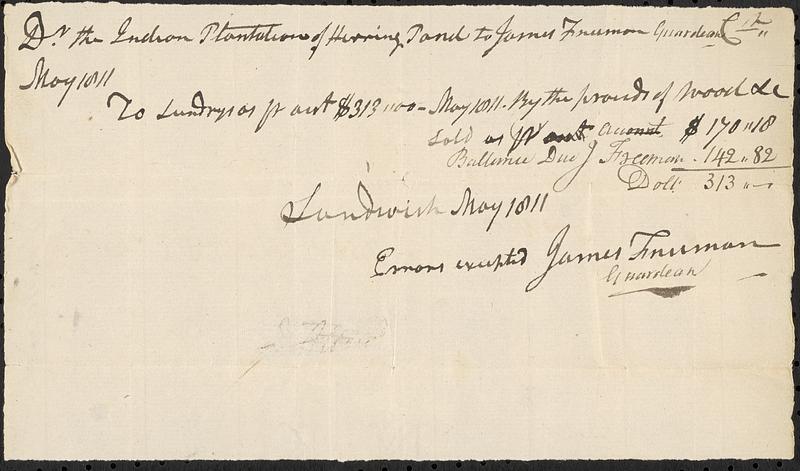 Dr. the Indian Plantation of Herring Pond to James Freeman Guardean Cr
May 1811
To Sundrys as pr aut $313,,00 - May 1811. By the proueds of Wood &c
Sold as pr aut account, $ 170,,18
Ballence Due J Freeman . 142,,82
Doll: 313,,-
Sandwich May 1811
Errors excepted James Freeman
Guardean